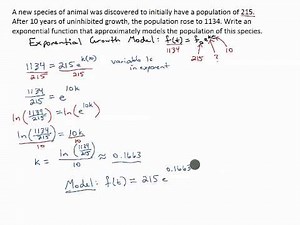 A new species of animal was discovered to initially have a population of 215.
After 10 years of uninhibited growth, the population rose to 1134. Write an
exponential function that approximately models the population of this species.
Exponential Growth Model: f(t) =
1134 215 ? 10
1134/215 = 215 e^k(10)/215
variable is
in exponent
1134/215 = e^10k
ln(1134/215) = ln(e^10k)
ln(1134/215)/10 = 10k/10
k = ln(1134/215)/10 ≈ 0.1663
Model: f(t) = 215 e^0.1663